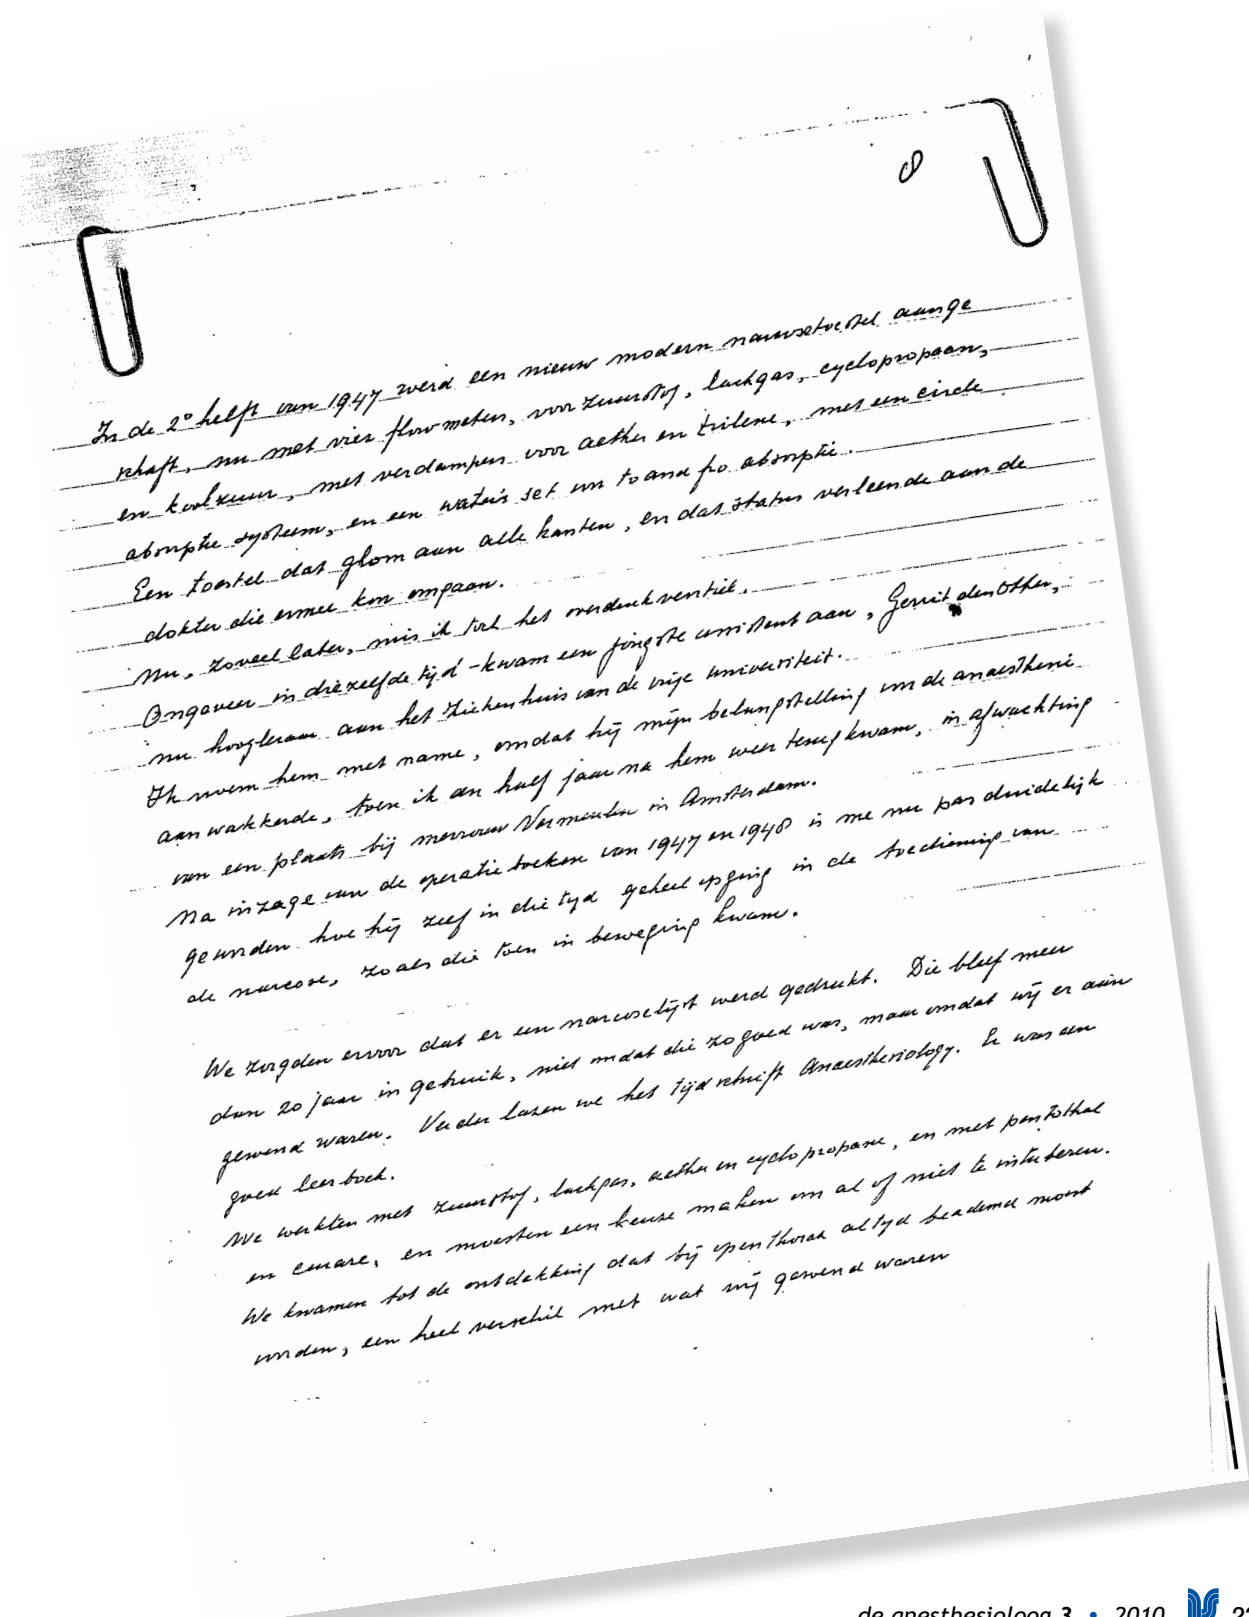 8
In de 2e helft van 1947 werd een nieuw modern narcosetoestel aange
schaft, nu met vier flowmeters, voor zuurstof, lachgas, cyclopropaan,
en koolzuur, met verdampers voor aether en trilene, met een circle
absorptie systeem, en een waters set om to and fro absorptie.
Een toestel dat glom aan alle kanten, en dat status verleende aan de
dokter die ermee kon omgaan.
Nu, zoveel later, mis ik toch het overdrukventiel.
Ongeveer in diezelfde tijd kwam een jongste assistent aan, Gerrit den Otter,
nu hoogleraar aan het Ziekenhuis van de vrije universiteit.
Ik noem hem met name, omdat hij mijn belangstelling om de anaesthesie
aanwakkerde, toen ik een half jaar na hem weer terug kwam, in afwachting
van een plaats bij mevrouw Vermeulen in Amsterdam.
Na inzage van de operatie boeken van 1947 en 1948 is me nu pas duidelijk
geworden hoe hij zelf in die tijd geheel opging in de toediening van
de narcose, zoals die toen in beweging kwam.
We zorgden ervoor dat er een narcoselijst werd gedrukt. Die bleef meer
dan 20 jaar in gebruik, niet omdat die zo goed was, maar omdat wij er aan
gewend waren. Verder lazen we het tijdschrift Anaesthesiology. Er was een
goed leerboek.
We werkten met zuurstof, lachgas, aether en cyclopropane, en met pentothal
en curare, en moesten een keuze maken om al of niet te intuberen.
We kwamen tot de ontdekking dat bij open thorax altijd beademd moest
worden, een heel verschil met wat wij gewend waren
de anesthesioloog 3 • 2010